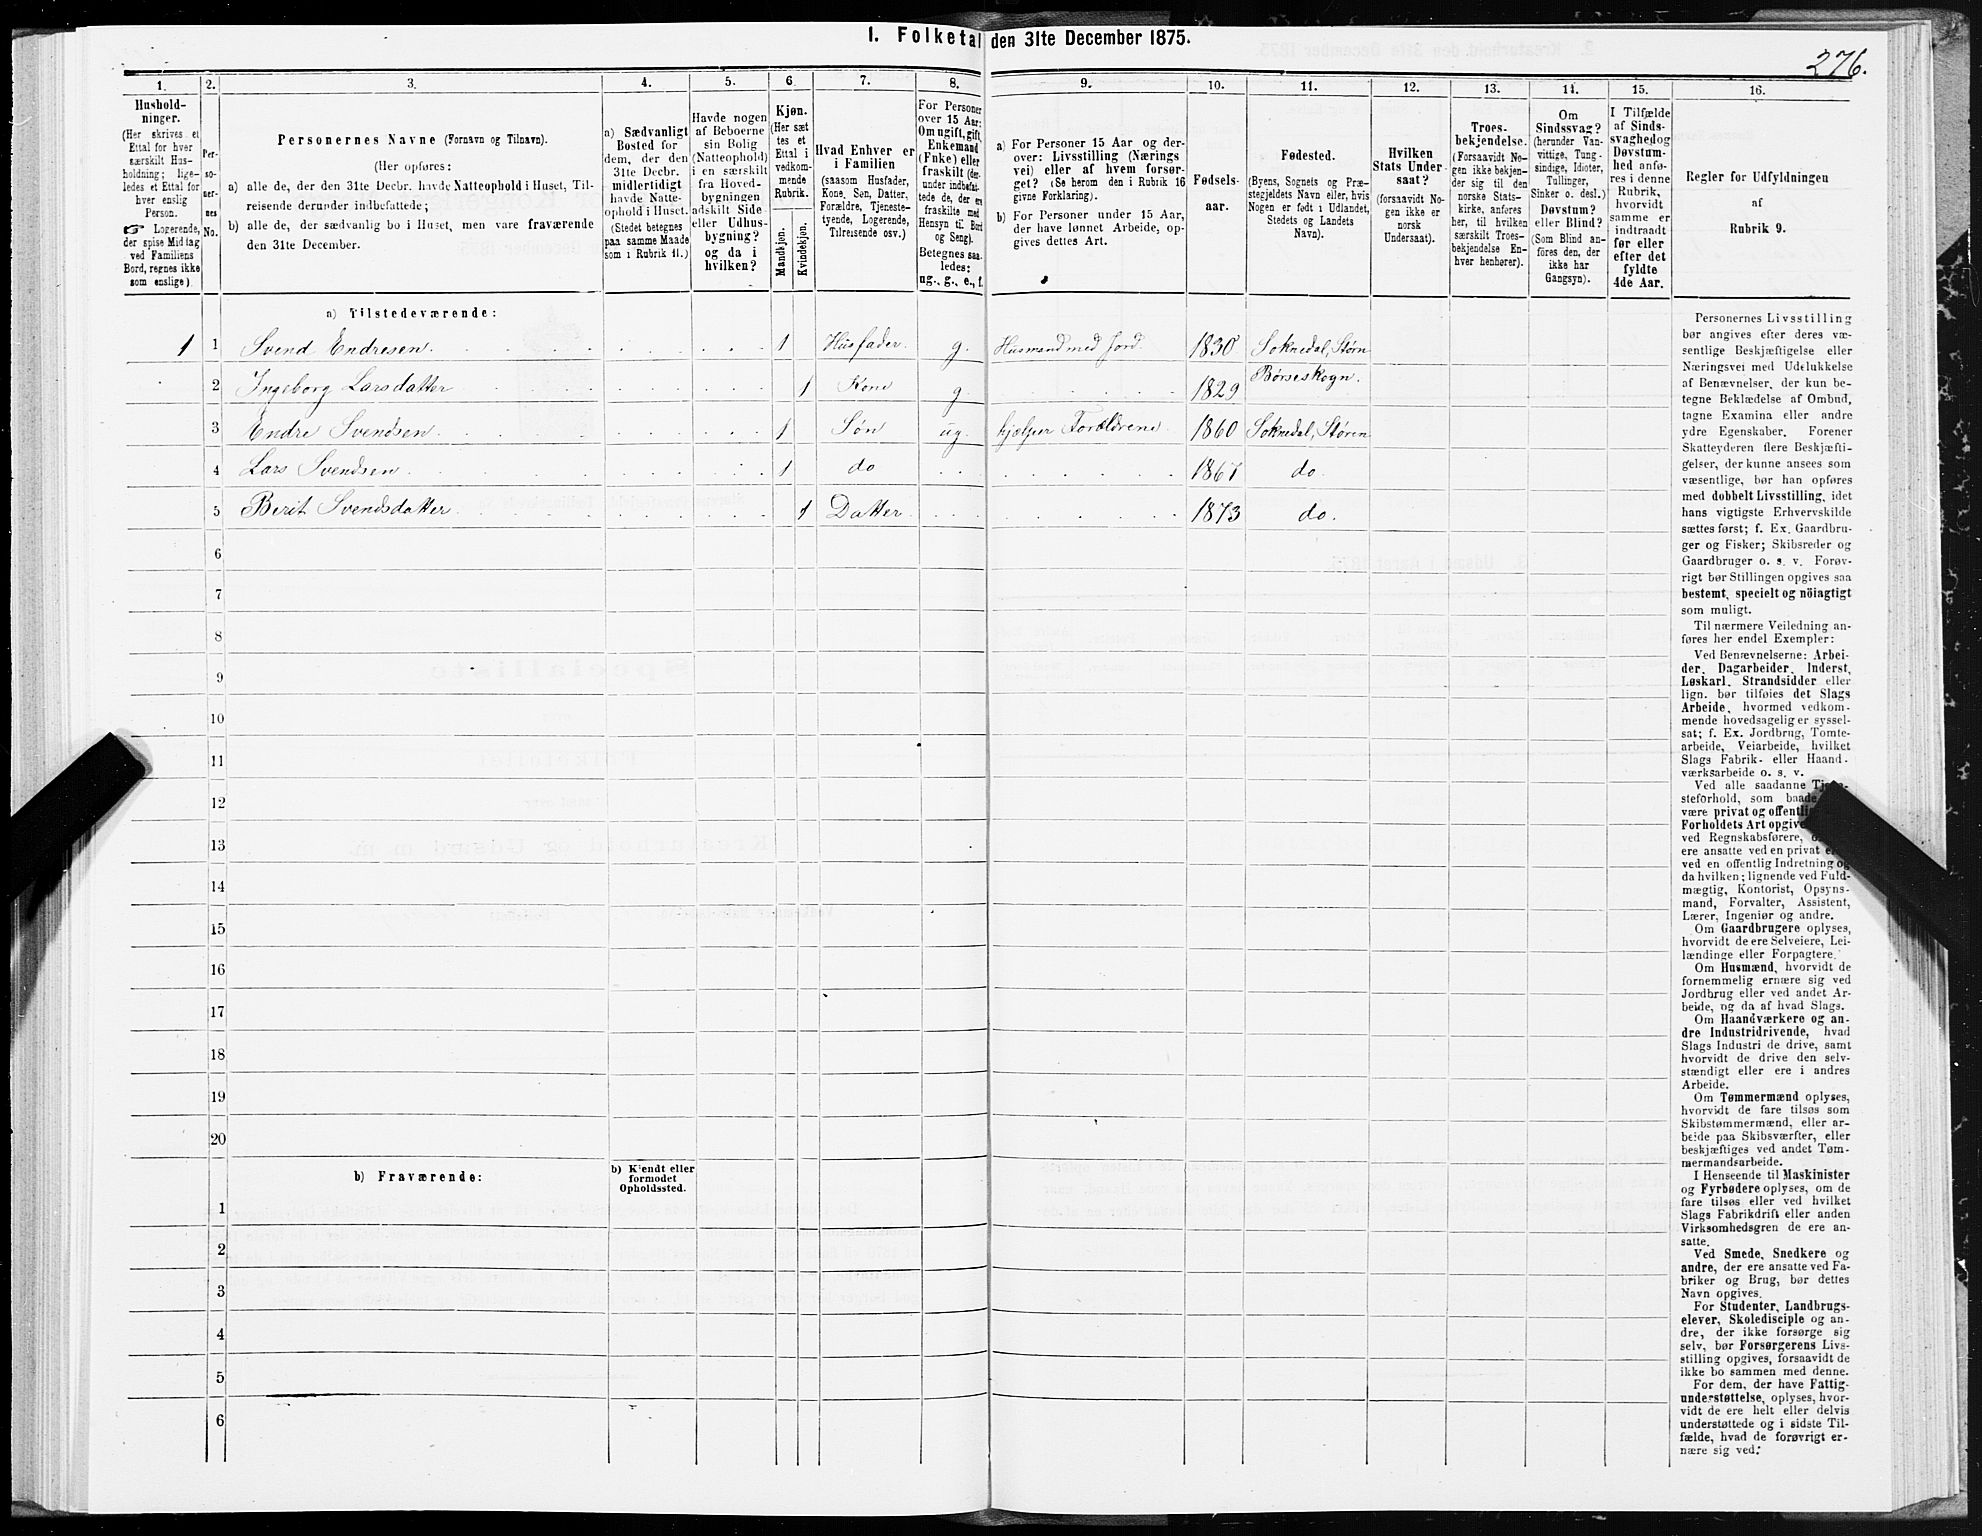 I. Folketal den 31te December 1875.
276.
1. 2. 3. 4. 5. 6. 7. 8. 9. 10. 11. 12. 13. 14. 15. 16.
Hushold-
ninger.
(Her skrives et
Ettal for hver
særskilt Hus-
holdning; lige-
ledes et Ettal for
hver enslig
Person.
☞ Logerende,
der spise Middag
ved Familiens
Bord, regnes ikke
som enslige).
Per-
so-
ner-
nes
No.
Personernes Navne (Fornavn og Tilnavn).
(Her opføres:
a) alle de, der den 31te Decbr. havde Natteophold i Huset, Til-
reisende derunder indbefattede;
b) alle de, der sædvanlig bo i Huset, men vare fraværende
den 31te December.
a) Sædvanligt
Bosted for
dem, der den
31te Decbr.
midlertidigt
havde Natte-
ophold i Huset.
(Stedet betegnes
paa samme Maade
som i Rubrik 11.)
Havde nogen
af Beboerne
sin Bolig
(Natteophold)
i en særskilt
fra Hoved-
bygningen
adskilt Side-
eller Udhus-
bygning?
og da i
hvilken?
Kjøn.
(Her sæt-
tes et
Ettal i
vedkom-
mende
Rubrik.
Mandkjøn.
Kvindekjøn.
Hvad Enhver er
i Familien
(saasom Husfader,
Kone, Søn, Datter,
Forældre, Tjeneste-
tyende, Logerende,
Tilreisende osv.)
For Personer
over 15 Aar:
Om ugift, gift,
Enkemand
(Enke) eller
fraskilt (der-
under indbefat-
tede de, der ere
fraskilte med
Hensyn til Bord
og Seng).
Betegnes saa-
ledes:
ug., g., e., f.
a) For Personer 15 Aar og der-
over: Livsstilling (Nærings
vei) eller af hvem forsør-
get? (Se herom den i Rubrik 16
givne Forklaring).
b) For Personer under 15 Aar,
der have lønnet Arbeide, op-
gives dettes Art.
Fødsels-
aar.
Fødested.
(Byens, Sognets og Præ-
stegjeldets Navn eller, hvis
Nogen er født i Udlandet,
Stedets og Landets
Navn).
Hvilken
Stats Under-
saat?
(forsaavidt No-
gen ikke er
norsk
Undersaat).
Troes-
bekjendelse.
(Forsaavidt No-
gen ikke bekjen-
der sig til den
norske Stats-
kirke, anføres
her, til hvilken
særskilt Troes-
bekjendelse En-
hver henhører).
Om
Sindssvag?
(herunder Van-
vittige, Tung-
sindige, Idioter,
Tullinger,
Sinker o. desl.)
Døvstum?
eller Blind?
(Som Blind an-
føres den, der
ikke har
Gangsyn).
I Tilfælde
af Sinds-
svaghed og
Døvstum-
hed anfø-
res i denne
Rubrik,
hvorvidt
samme er
indtraadt
før eller
efter det
fyldte
4de Aar.
Regler for Udfyldningen
af
Rubrik 9.
a) Tilstedeværende:
1 1 Svend Endresen. 1 Husfader. g. Husmand med Jord. 1830 Soknedal, Støren
2 Ingeborg Larsdatter 1 Kone g. 1829 Børseskogn.
3 Endre Svendsen. 1 Søn ug. hjelper Forældrene 1860 Soknedal, Støren
4 Lars Svendsen. 1 do 1867 do.
5 Berit Svendsdatter 1 Datter 1873 do.
6
7
8
9
10
11
12
13
14
15
16
17
18
19
20
b) Fraværende:
b) Kjendt eller
formodet
Opholdssted.
1
2
3
4
5
6
Personernes Livsstilling
bør angives efter deres væ-
sentlige Beskjæftigelse eller
Næringsvei med Udelukkelse
af Benævnelser, der kun be-
tegne Beklædelse af Ombud,
tagne Examina eller andre
ydre Egenskaber. Forener
Skatteyderen flere Beskjæfti-
gelser, der kunne ansees som
væsentlige, bør han opføres
med dobbelt Livsstilling, idet
hans vigtigste Erhvervskilde
sættes først; f. Ex. Gaardbru-
ger og Fisker; Skibsreder og
Gaardbruger o. s. v. Forøv-
rigt bør Stillingen opgives saa
bestemt, specielt og nöiagtigt
som muligt.
Til nærmere Veiledning an-
føres her endel Exempler:
Ved Benævnelserne: Arbei-
der, Dagarbeider, Inderst,
Løskarl, Strandsidder eller
lign. bør tilføies det Slags
Arbeide, hvormed vedkom-
mende hovedsagelig er syssel-
sat; f. Ex. Jordbrug, Tomte-
arbeide, Veiarbeide, hvilket
Slags Fabrik- eller Haand-
værksarbeide o. s. v.
Ved alle saadanne
steforhold, som
være privat og
Forholdets Art
ved Regnskabsførere,
ere ansatte ved en privat
ved en offentlig Indretning og
da hvilken; lignende ved Fuld-
mægtig, Kontorist, Opsyns-
mand, Forvalter, Assistent,
Lærer, Ingeniør og andre.
Om Gaardbrugere oplyses,
hvorvidt de ere Selveiere, Lei-
lændinge eller Forpagtere.
Om Husmænd, hvorvidt de
fornemmelig ernære sig ved
Jordbrug eller ved andet Ar-
beide, og da af hvad Slags.
Om Haandværkere og an-
dre Industridrivende, hvad
Slags Industri de drive, samt
hvorvidt de drive den selv-
stændigt eller ere i andres
Arbeide.
Om Tømmermænd oplyses,
hvorvidt de fare tilsøs som
Skibstømmermænd, eller ar-
beide paa Skibsværfter, eller
beskjæftiges ved andet Tøm-
mermandsarbeide.
I Henseende til Maskinister
og Fyrbødere oplyses, om de
fare tilsøs eller ved hvilket
Slags Fabrikdrift eller anden
Virksomhedsgren de ere an-
satte.
Ved Smede, Snedkere og
andre, der ere ansatte ved Fa-
briker og Brug, bør dettes
Navn opgives.
For Studenter, Landbrugs-
elever, Skoledisciple og an-
dre, der ikke forsørge sig
selv, bør Forsørgerens Livs-
stilling opgives, forsaavidt de
ikke bo sammen med denne.
For dem, der have Fattig-
understøttelse, oplyses, hvor-
vidt de ere helt eller delvis
understøttede og i sidste Til-
fælde, hvad de forøvrigt er-
nære sig ved.